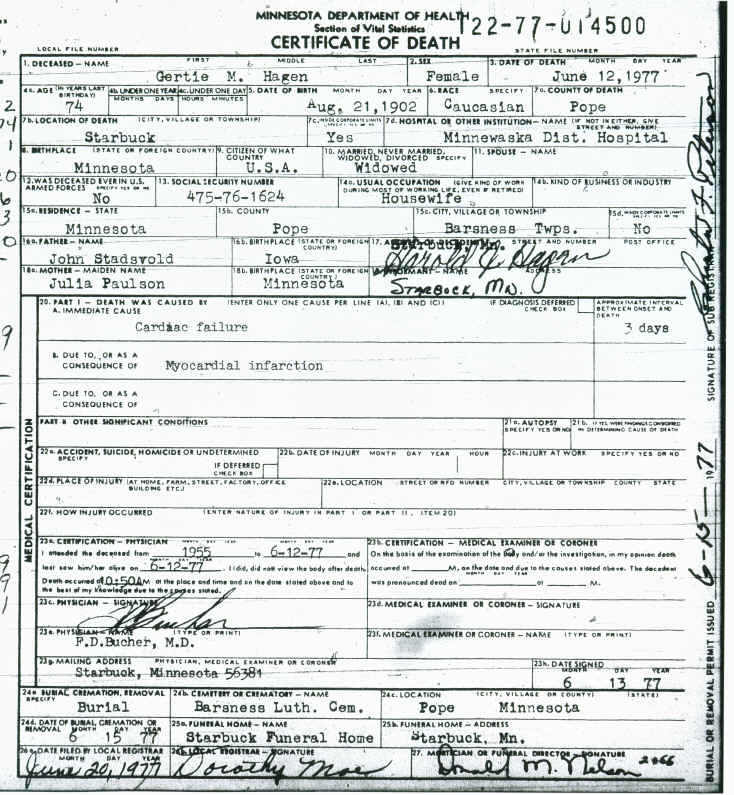 MINNESOTA DEPARTMENT OF HEALTH
22-77-014500
Section of Vital Statistics
CERTIFICATE OF DEATH
LOCAL FILE NUMBER STATE FILE NUMBER
1. DECEASED - NAME FIRST MIDDLE LAST 2. SEX 3. DATE OF DEATH MONTH DAY YEAR
Gertie M. Hagen Female June 12,1977
4a. AGE (IN YEARS LAST BIRTHDAY) 4b. UNDER ONE YEAR 4c. UNDER ONE DAY 5. DATE OF BIRTH MONTH DAY YEAR 6. RACE SPECIFY 7a. COUNTY OF DEATH
MONTHS DAYS HOURS MINUTES
74 Aug. 21,1902 Caucasian Pope
7b. LOCATION OF DEATH (CITY, VILLAGE OR TOWNSHIP) 7c. INSIDE CORPORATE LIMITS 7d. HOSPITAL OR OTHER INSTITUTION - NAME (IF NOT IN EITHER, GIVE STREET AND NUMBER)
Starbuck Yes Minnewaska Dist. Hospital
8. BIRTHPLACE (STATE OR FOREIGN COUNTRY) 9. CITIZEN OF WHAT COUNTRY 10. MARRIED, NEVER MARRIED, WIDOWED, DIVORCED SPECIFY 11. SPOUSE - NAME
Minnesota U.S.A. Widowed
12. WAS DECEASED EVER IN U.S. ARMED FORCES 13. SOCIAL SECURITY NUMBER 14a. USUAL OCCUPATION (GIVE KIND OF WORK DURING MOST OF WORKING LIFE, EVEN IF RETIRED) 14b. KIND OF BUSINESS OR INDUSTRY
No 475-76-1624 Housewife
15a. RESIDENCE - STATE 15b. COUNTY 15c. CITY, VILLAGE OR TOWNSHIP 15d. INSIDE CORPORATE LIMITS
Minnesota Pope Barsness Twps. No
16a. FATHER - NAME 16b. BIRTHPLACE (STATE OR FOREIGN COUNTRY) 17. STREET AND NUMBER POST OFFICE
Starbuck, Mn.
John Stadsvold Iowa Harold J. Hagen
18a. MOTHER - MAIDEN NAME 18b. BIRTHPLACE (STATE OR FOREIGN COUNTRY) INFORMANT - NAME ADDRESS
Julia Paulson Minnesota STARBUCK, MN.
20. PART I - DEATH WAS CAUSED BY (ENTER ONLY ONE CAUSE PER LINE (A), (B) AND (C)) IF DIAGNOSIS DEFERRED CHECK BOX APPROXIMATE INTERVAL BETWEEN ONSET AND DEATH
A. IMMEDIATE CAUSE
Cardiac failure 3 days
B. DUE TO, OR AS A CONSEQUENCE OF Myocardial infarction
C. DUE TO, OR AS A CONSEQUENCE OF
PART II OTHER SIGNIFICANT CONDITIONS 21a. AUTOPSY SPECIFY YES OR NO 21b. IF YES, WERE FINDINGS CONSIDERED IN DETERMINING CAUSE OF DEATH
22a. ACCIDENT, SUICIDE, HOMICIDE OR UNDETERMINED SPECIFY 22b. DATE OF INJURY MONTH DAY YEAR HOUR 22c. INJURY AT WORK SPECIFY YES OR NO
IF DEFERRED CHECK BOX
22d. PLACE OF INJURY (AT HOME, FARM, STREET, FACTORY, OFFICE BUILDING ETC.) 22e. LOCATION STREET OR RFD NUMBER CITY, VILLAGE OR TOWNSHIP COUNTY STATE
22f. HOW INJURY OCCURRED (ENTER NATURE OF INJURY IN PART I OR PART II, ITEM 20)
MEDICAL CERTIFICATION
23a. CERTIFICATION - PHYSICIAN MONTH DAY YEAR MONTH DAY YEAR 23b. CERTIFICATION - MEDICAL EXAMINER OR CORONER
I attended the deceased from 1955 to 6-12-77 and On the basis of the examination of the body and/or the investigation, in my opinion death
last saw him/her alive on 6-12-77. I did, did not view the body after death. occurred at M., on the date and due to the causes stated above. The decedent
Death occurred 10:50AM at the place and time and on the date stated above and to was pronounced dead on at M.
the best of my knowledge due to the causes stated.
23c. PHYSICIAN - SIGNATURE 23d. MEDICAL EXAMINER OR CORONER - SIGNATURE
Bucher
23e. PHYSICIAN - NAME (TYPE OR PRINT) 23f. MEDICAL EXAMINER OR CORONER - NAME (TYPE OR PRINT)
F.D.Bucher, M.D.
23g. MAILING ADDRESS PHYSICIAN, MEDICAL EXAMINER OR CORONER 23h. DATE SIGNED MONTH DAY YEAR
Starbuck, Minnesota 56381 6 13 77
24a. BURIAL, CREMATION, REMOVAL SPECIFY 24b. CEMETERY OR CREMATORY - NAME 24c. LOCATION (CITY, VILLAGE OR COUNTY) (STATE)
Burial Barsness Luth. Cem. Pope Minnesota
24d. DATE OF BURIAL, CREMATION OR REMOVAL MONTH DAY YEAR 25a. FUNERAL HOME - NAME 25b. FUNERAL HOME - ADDRESS
6 15 77 Starbuck Funeral Home Starbuck, Mn.
26a. DATE FILED BY LOCAL REGISTRAR MONTH DAY YEAR 26b. LOCAL REGISTRAR - SIGNATURE 27. MORTICIAN OR FUNERAL DIRECTOR - SIGNATURE
June 20, 1977 Dorothy Moe Donald M. Nelson 2066
BURIAL OR REMOVAL PERMIT ISSUED 6-15-1977 SIGNATURE OF SUB REGISTRAR